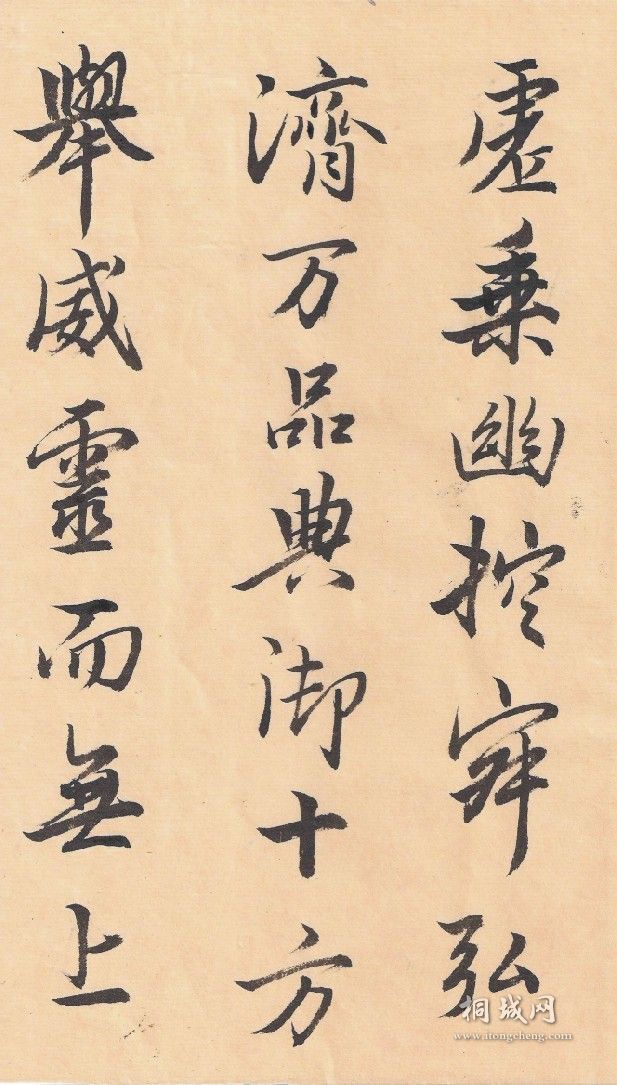 虛乗幽控寂弘
濟万品典御十方
舉威靈而無上
桐城网
www.itongcheng.com